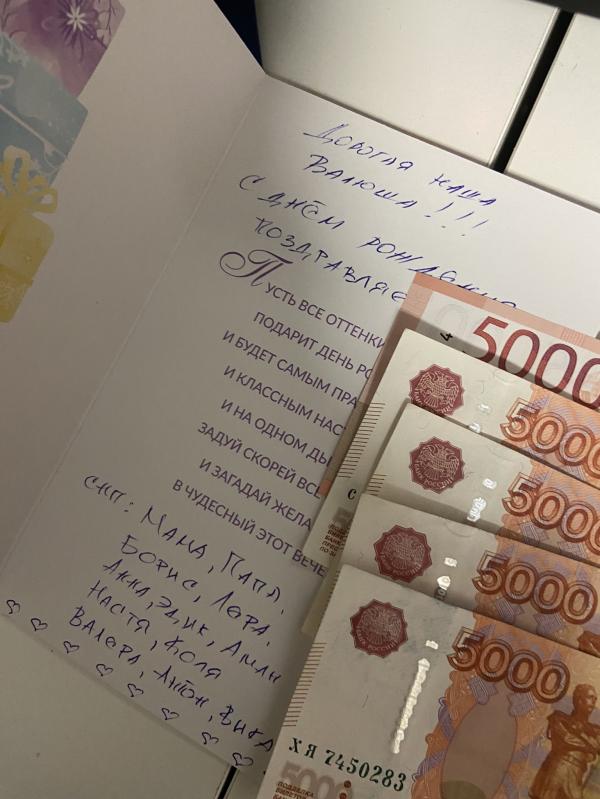 Дорогая наша
Валюша!!!
С Днём рождения
поздравляе
Пусть все оттенки
подарит день ро
и будет самым пра
и классным нас
и на одном ды
задуй скорей все
и загадай жела
в чудесный этот вече
СНП: Мама, Папа,
Борис, Лера,
Анна, Эдик,
Настя, Коля
Валера, Антон, Вика
5000
5000
5000
5000
5000
ХЯ 7450283
500
ПОДДЕЛКА
БИЛЕТОВ
БАНКА